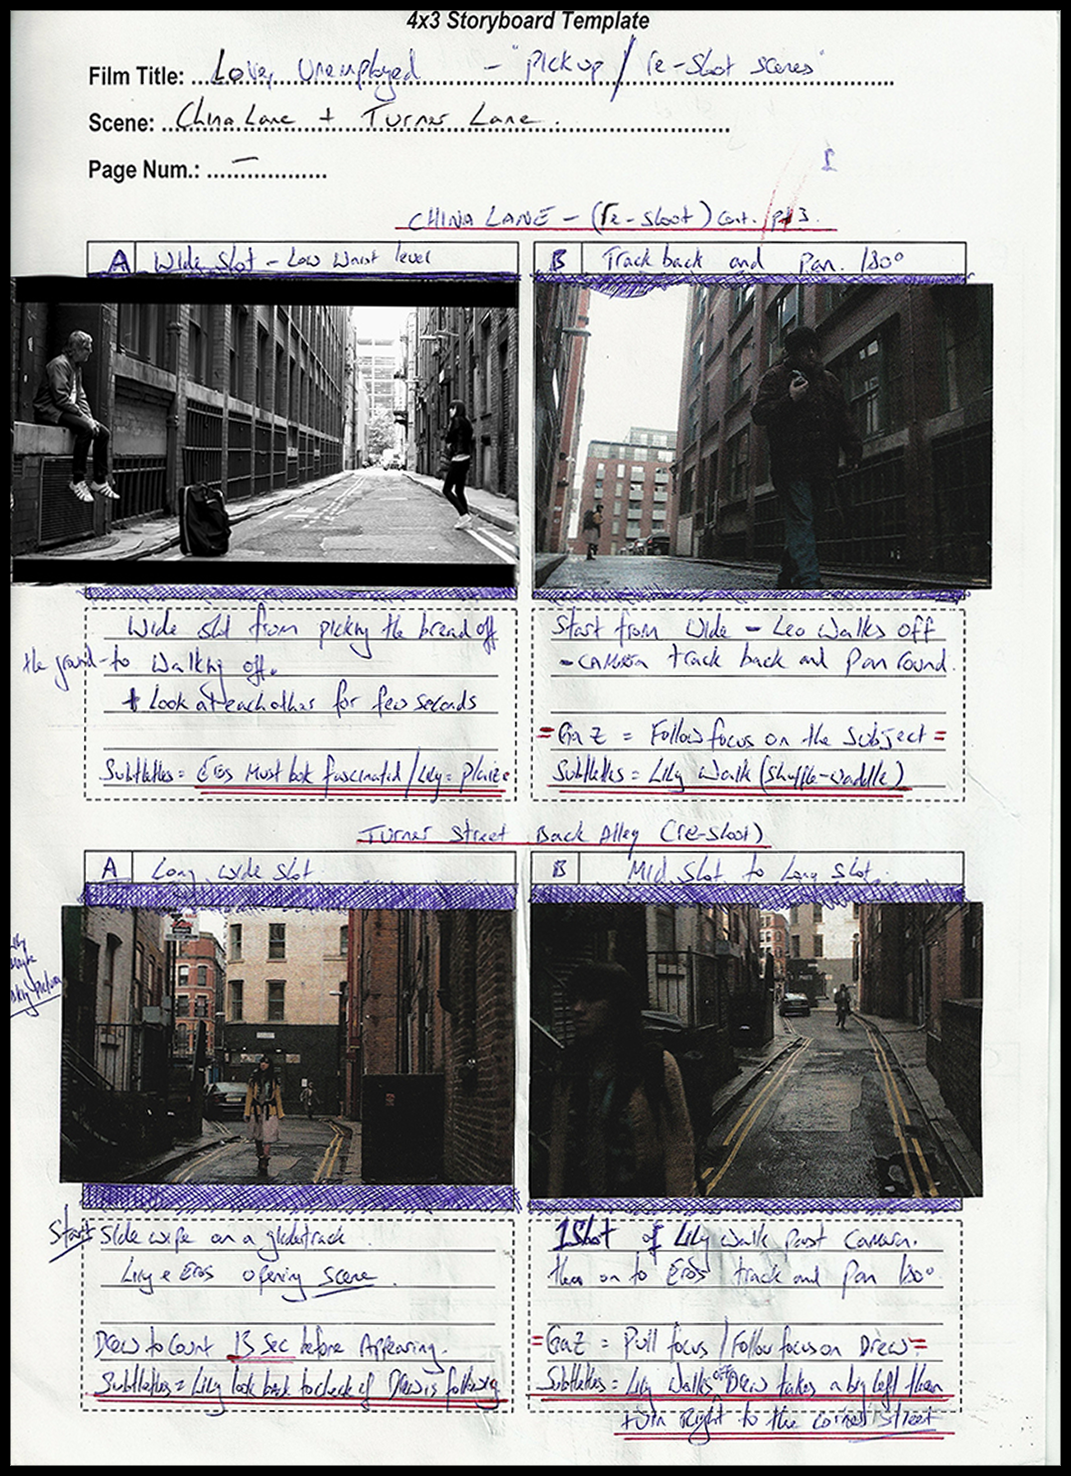 4x3 Storyboard Template
Film Title: Love, Unemployed - "Pick up / re-shoot scenes"
Scene: China Lane + Turner Lane.
Page Num.: –
CHINA LANE - (re-shoot) Cont. pt 3.
A Wide Shot - Low Waist level
B Track back and Pan. 180°
Wide shot from picking the bread off
the ground - to Walking off.
+ Look at each other for few seconds
Subtleties = Eros Must look fascinated / Lily =
Start from Wide - Leo Walks off
- CAMERA track back and Pan round.
= Gaz = Follow focus on the Subject =
Subtleties = Lily Walk (Shuffle-waddle)
Turner Street Back Alley (re-shoot)
A Long wide shot
B Mid Shot to Long Shot.
Lily
Start Side wipe on a glidetrack
Lily e Eros opening scene.
Drew to Count 13 Sec before Appearing.
Subtleties = Lily look back to check if Drew is following
1 Shot of Lily walk past Camera.
then on to Eros track and Pan 180°
= Gaz = Pull focus / Follow focus on Drew =
Subtleties = Lily Walks off Drew takes a big left then
turn Right to the corner street